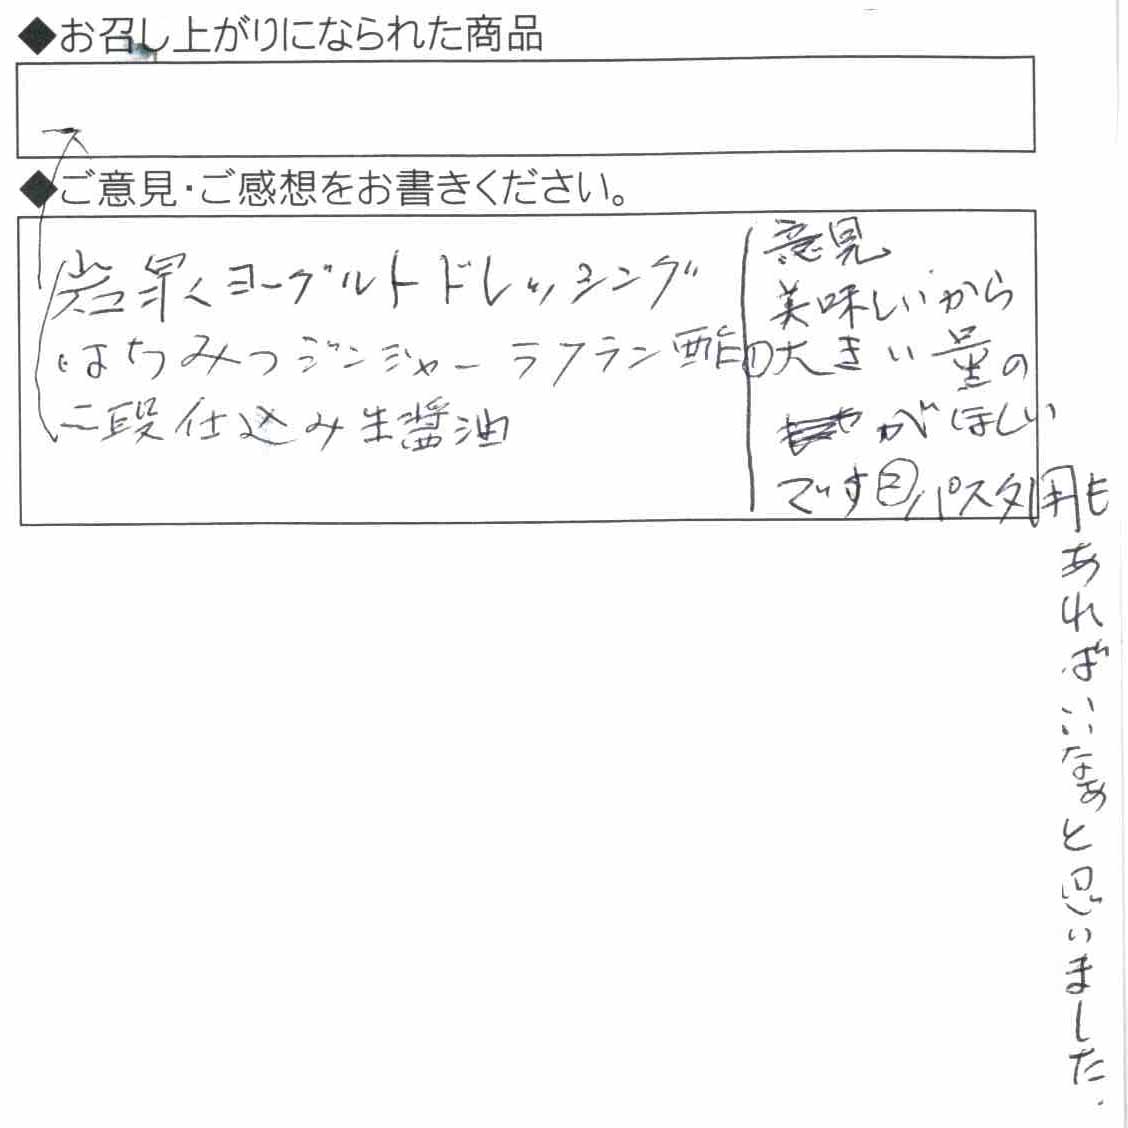 ◆お召し上がりになられた商品
◆ご意見・ご感想をお書きください。
岩泉ヨーグルトドレッシング
はちみつジンジャーラフラン酢
二段仕込み生醤油
意見
美味しいから
①大きい量の
がほしい
です②パスタ用も
あればいいなぁと思いました.